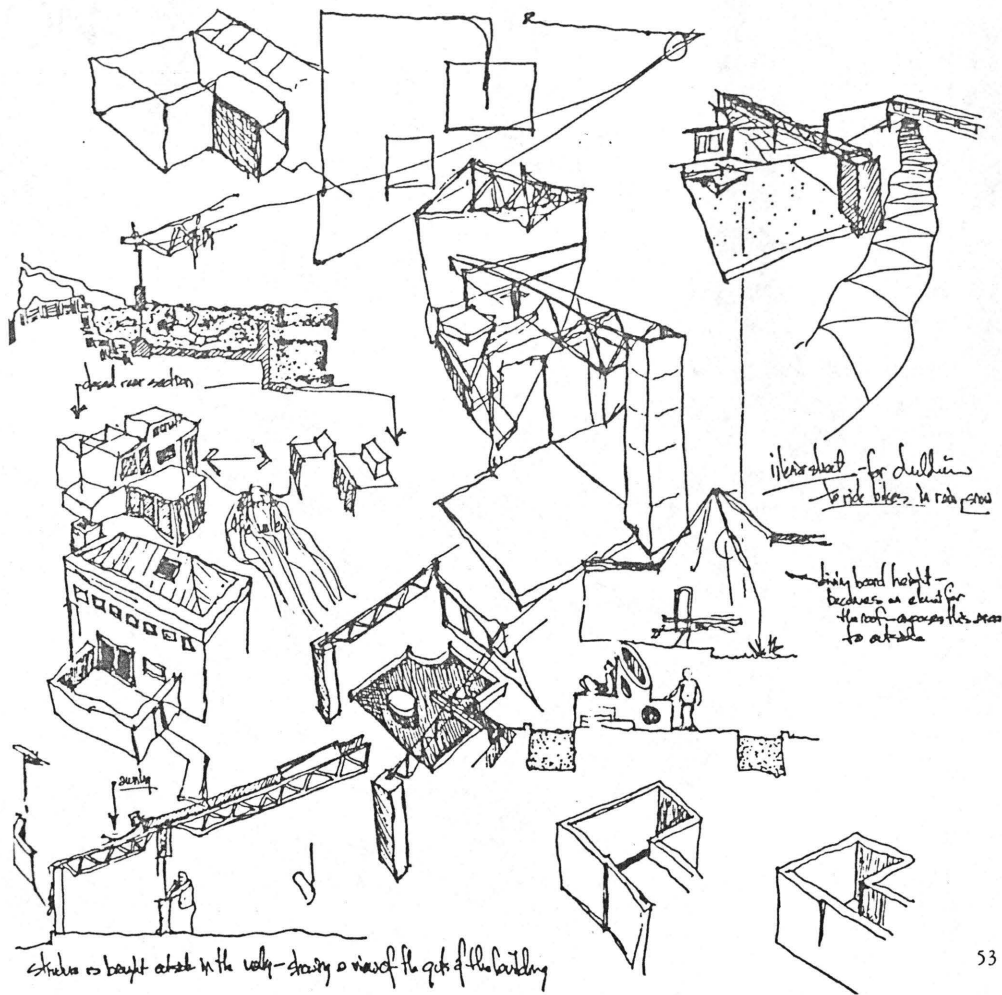 R
closed rear section
- for children
to ride bikes in rain, snow
diving board height -
becomes an element for
the roof - exposes this area
to outside
awning
structure is brought outside in the - showing a view of the guts of the building
53